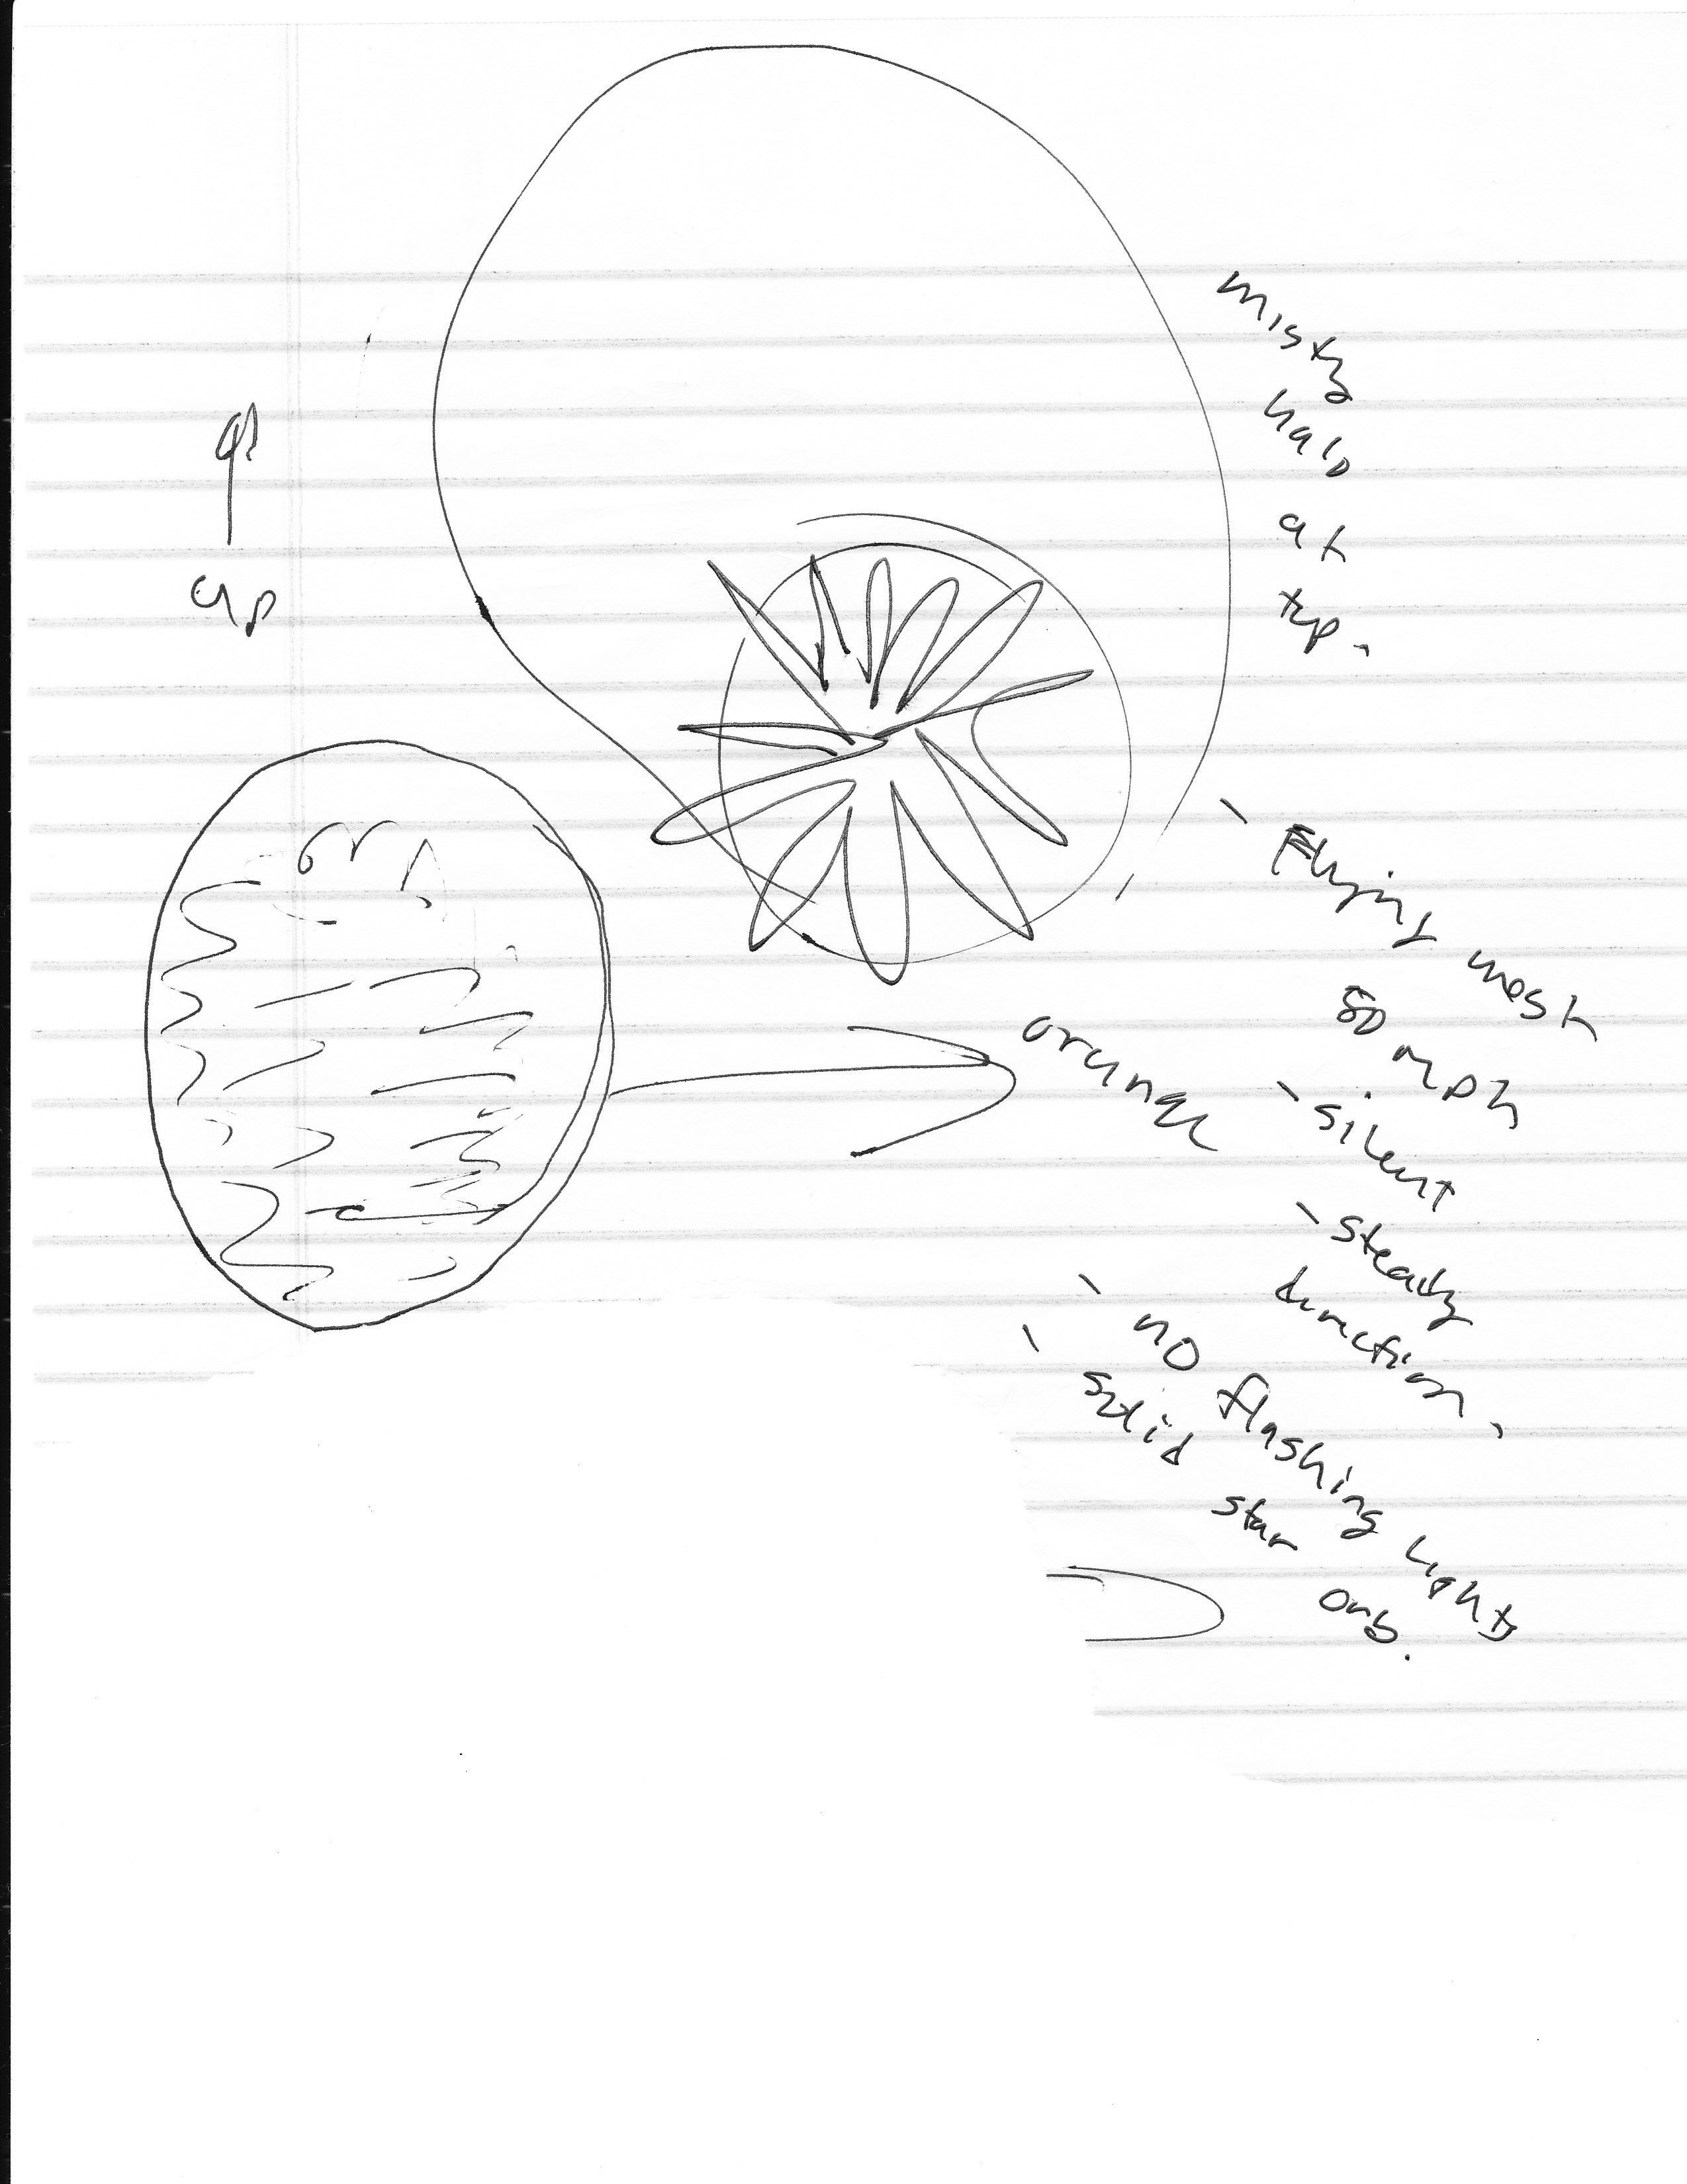 misty
halo
at
top.
up
- Flying west
50 mph
orange
- silent
- steady
direction.
- no flashing lights
- solid star orb.